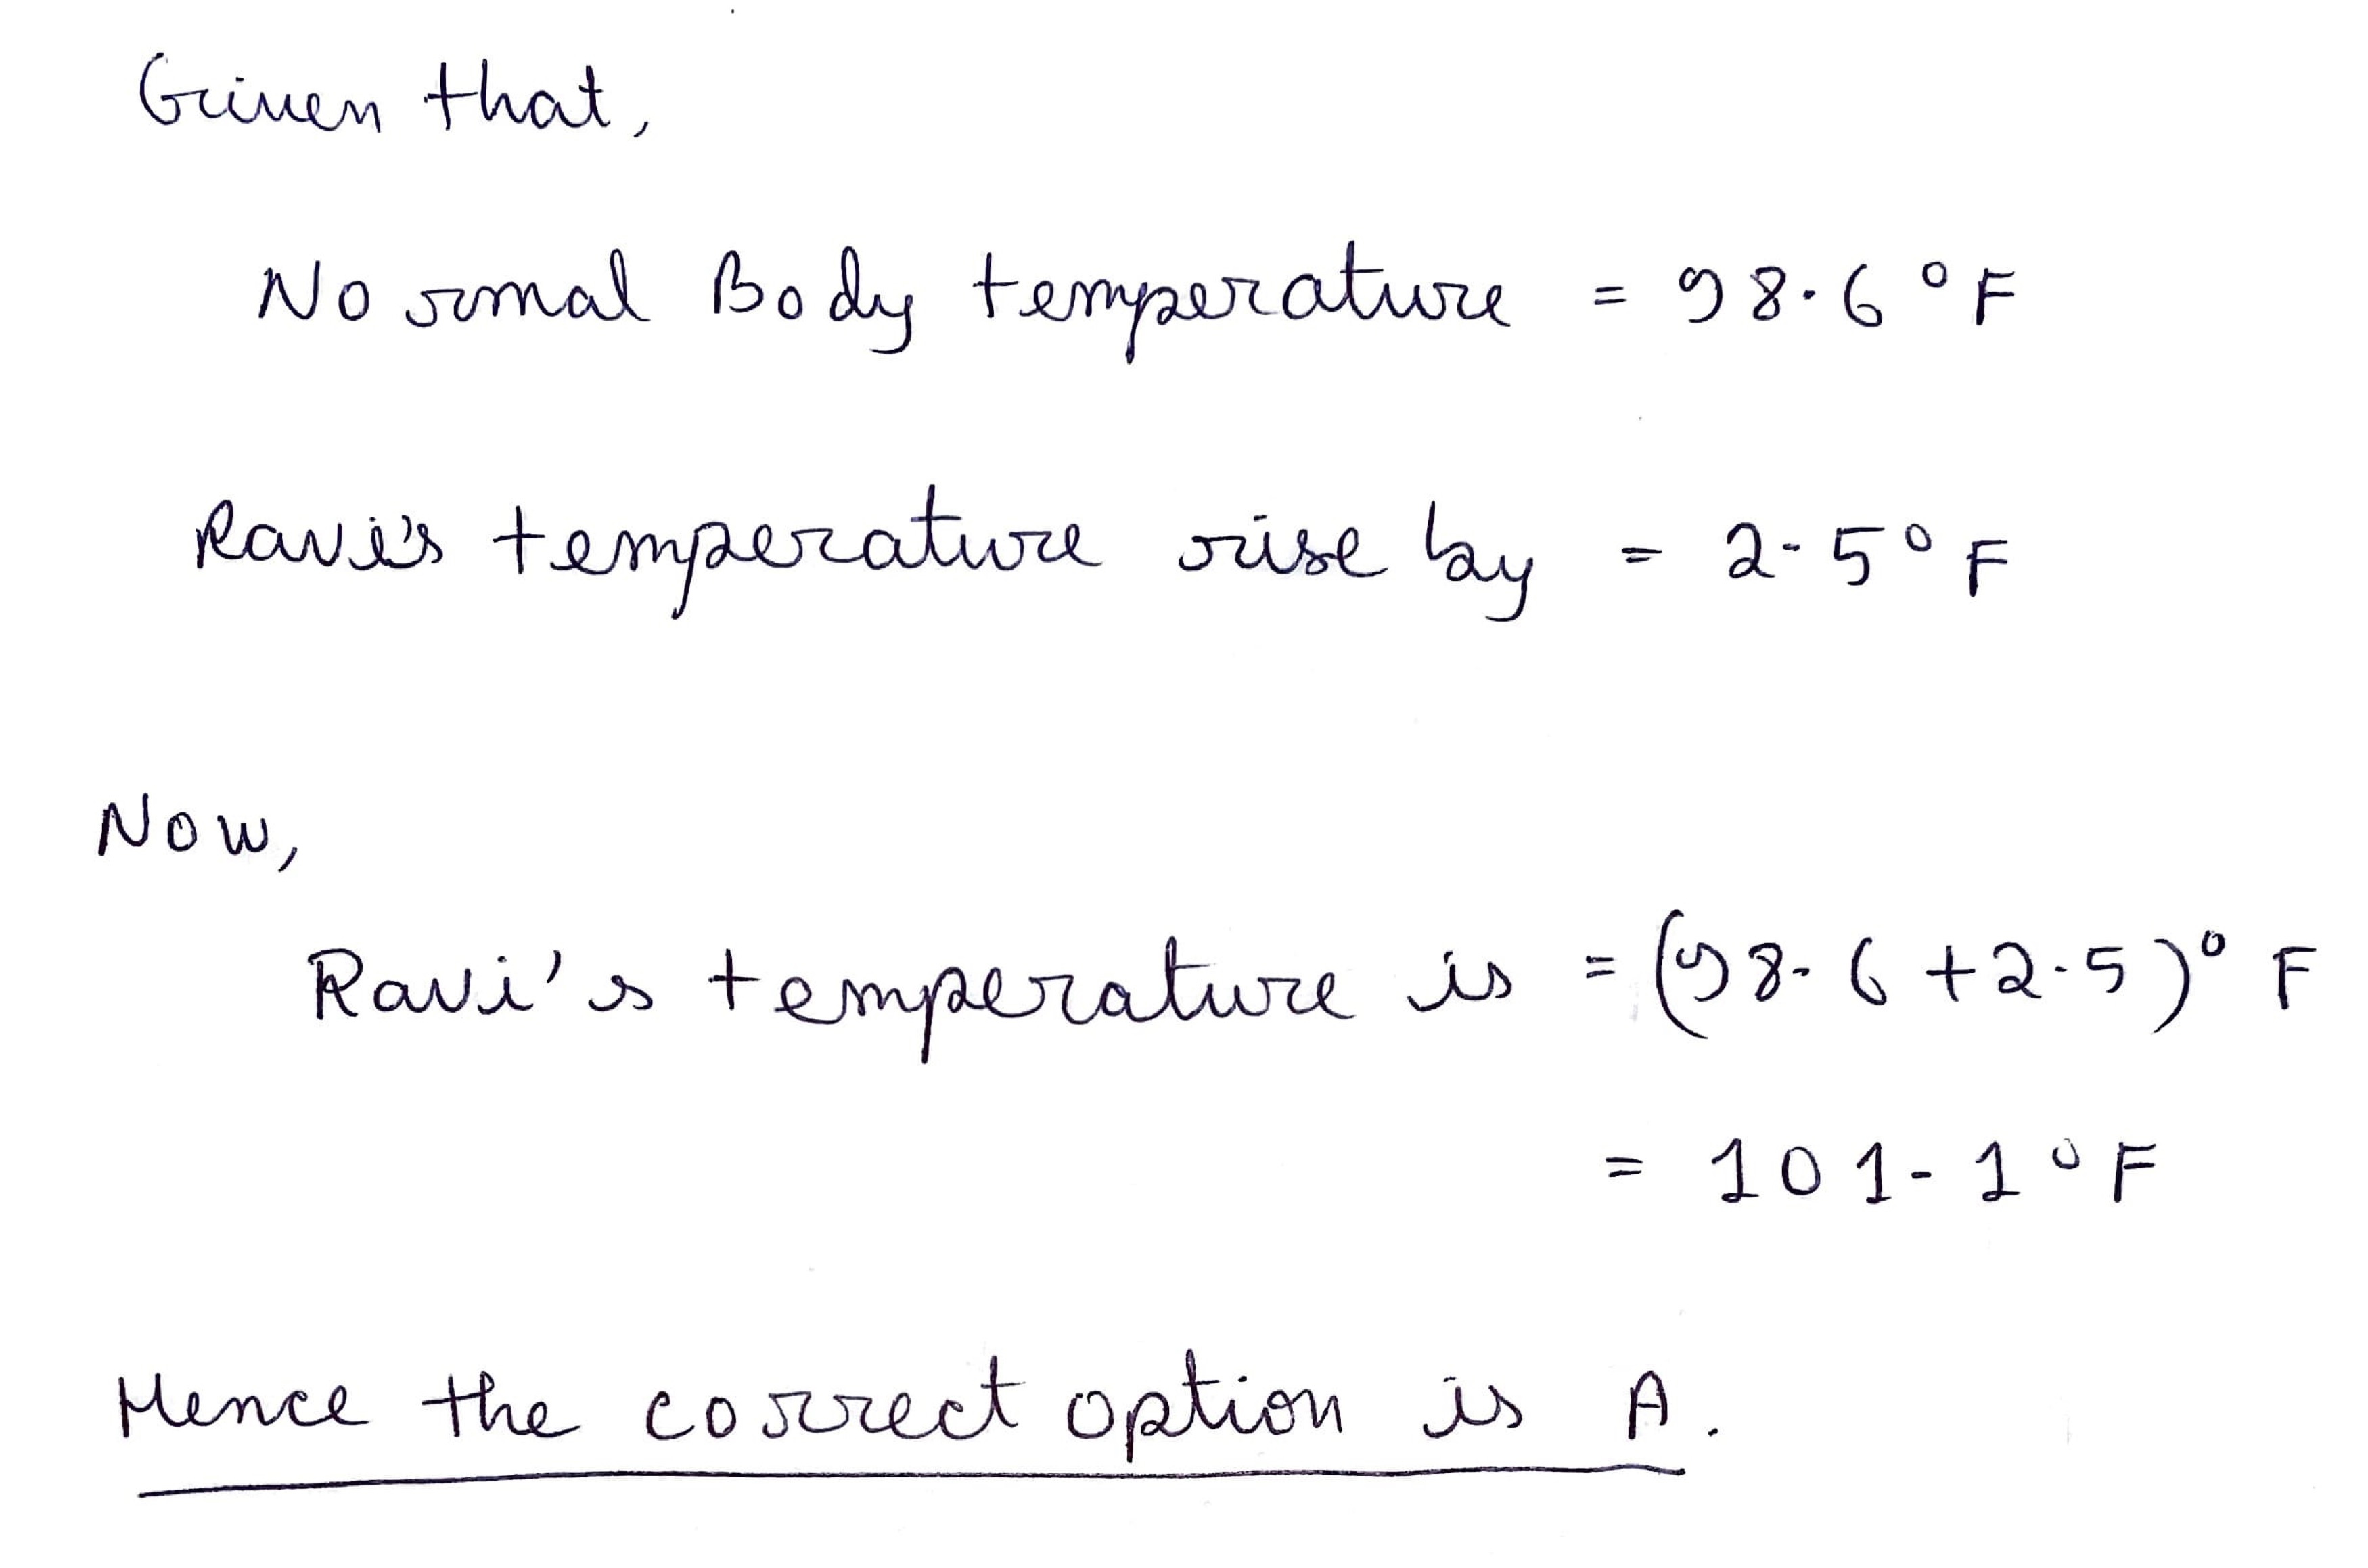 Given that,
Normal Body temperature = 98.6 °F
Ravi's temperature rise by = 2.5° F
Now,
Ravi's temperature is = (98.6 + 2.5)° F
= 101.1 °F
Hence the correct option is A.